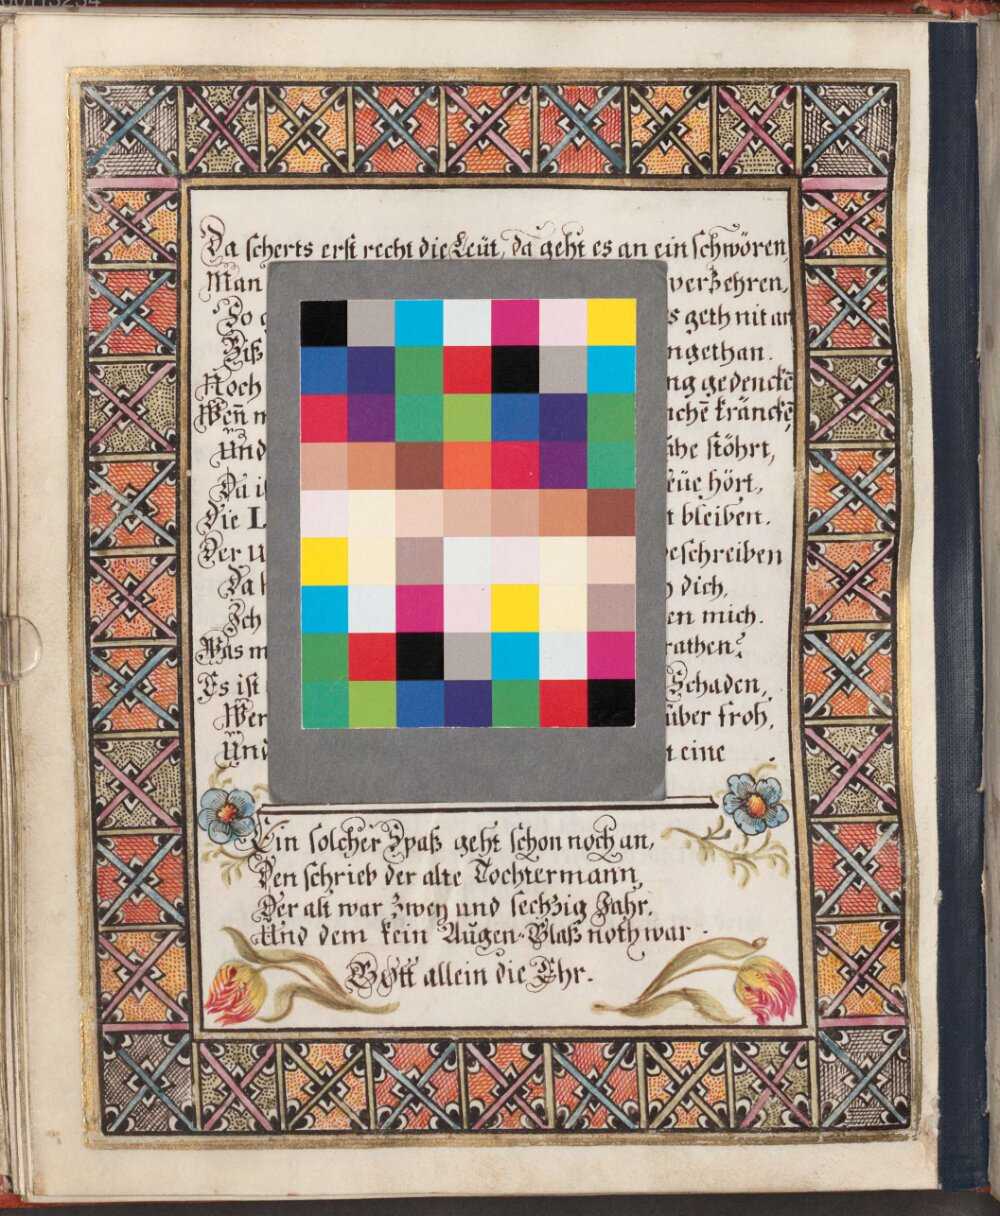 Da scherts erst recht die Leüt, da geht es an ein schwören,
Man verzehren,
So s geth nit an
Biß ngethan.
Noch ng gedenckē
Weñ m nchē kränckē,
Und uhe stöhrt,
Da i eüe hört,
Die L t bleiben.
Der u beschreiben
Da h dich,
Ich en mich.
Was m rathen?
Es ist Schaden,
Wer über froh,
Und t eine
Ein solcher Spaß geht schon noch an,
Den schrieb der alte Tochtermann,
Der alt war zwey und sechzig Jahr.
Und dem kein Augen-Glaß noth war.
Gott allein die Ehr.